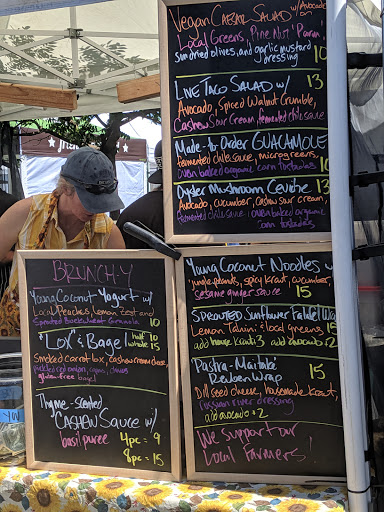 Vegan Caesar Salad w/ Avocado
Local Greens, Pine Nut "Parm",
sun dried olives, and garlic mustard
dressing 10
Live Taco Salad w/ 13
Avocado, Spiced Walnut Crumble,
Cashew Sour Cream, fermented chile sauce
Made-to Order GUACAMOLE
fermented chile sauce, microgreens,
oven baked organic corn tostadas 10
Oyster Mushroom Ceviche 13
Avocado, cucumber, cashew sour cream,
fermented chile sauce, oven baked organic
corn tostadas
BRUNCH-Y
Young Coconut Yogurt w/
Local Peaches, Lemon Zest and
Sprouted Buckwheat Granola 10
"LOX" & Bagel half 10
whole 15
Smoked carrot lox, cashew cream cheese,
pickled red onion, capers, chives
gluten-free bagel
Thyme-scented
CASHEW Sauce w/
basil puree 4pc = 9
8pc = 15
Young Coconut Noodles w/
jungle peanuts, spicy kraut, cucumber,
sesame ginger sauce 15
Sprouted Sunflower Falafel Wrap
Lemon Tahini & local greens 15
add house kraut 3 add avocado 2
Pastra-Maitake
Reuben Wrap 15
Dill seed cheese, housemade kraut,
russian river dressing
add avocado + 2
We Support our
Local Farmers!